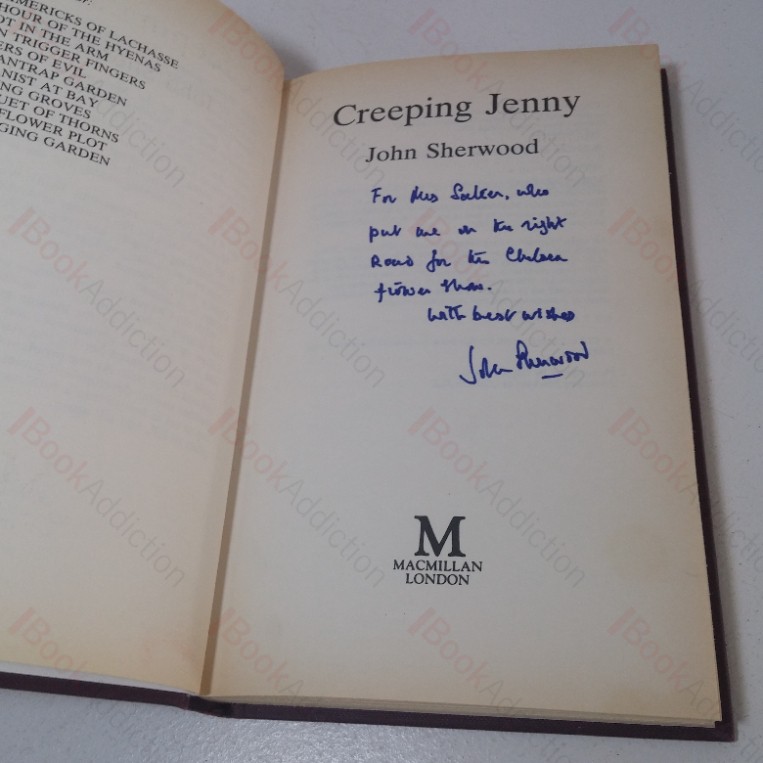 MERICKS OF LACHASSE
HOUR OF THE HYENAS
OT IN THE ARM
N TRIGGER FINGERS
ERS OF EVIL
ANTRAP GARDEN
NIST AT BAY
NG GROVES
UET OF THORNS
FLOWER PLOT
GING GARDEN
Creeping Jenny
John Sherwood
For Mrs who
put me on the right
Road for the Chelsea
flower show.
With best wishes
John Sherwood
M
MACMILLAN
LONDON
BookAddiction